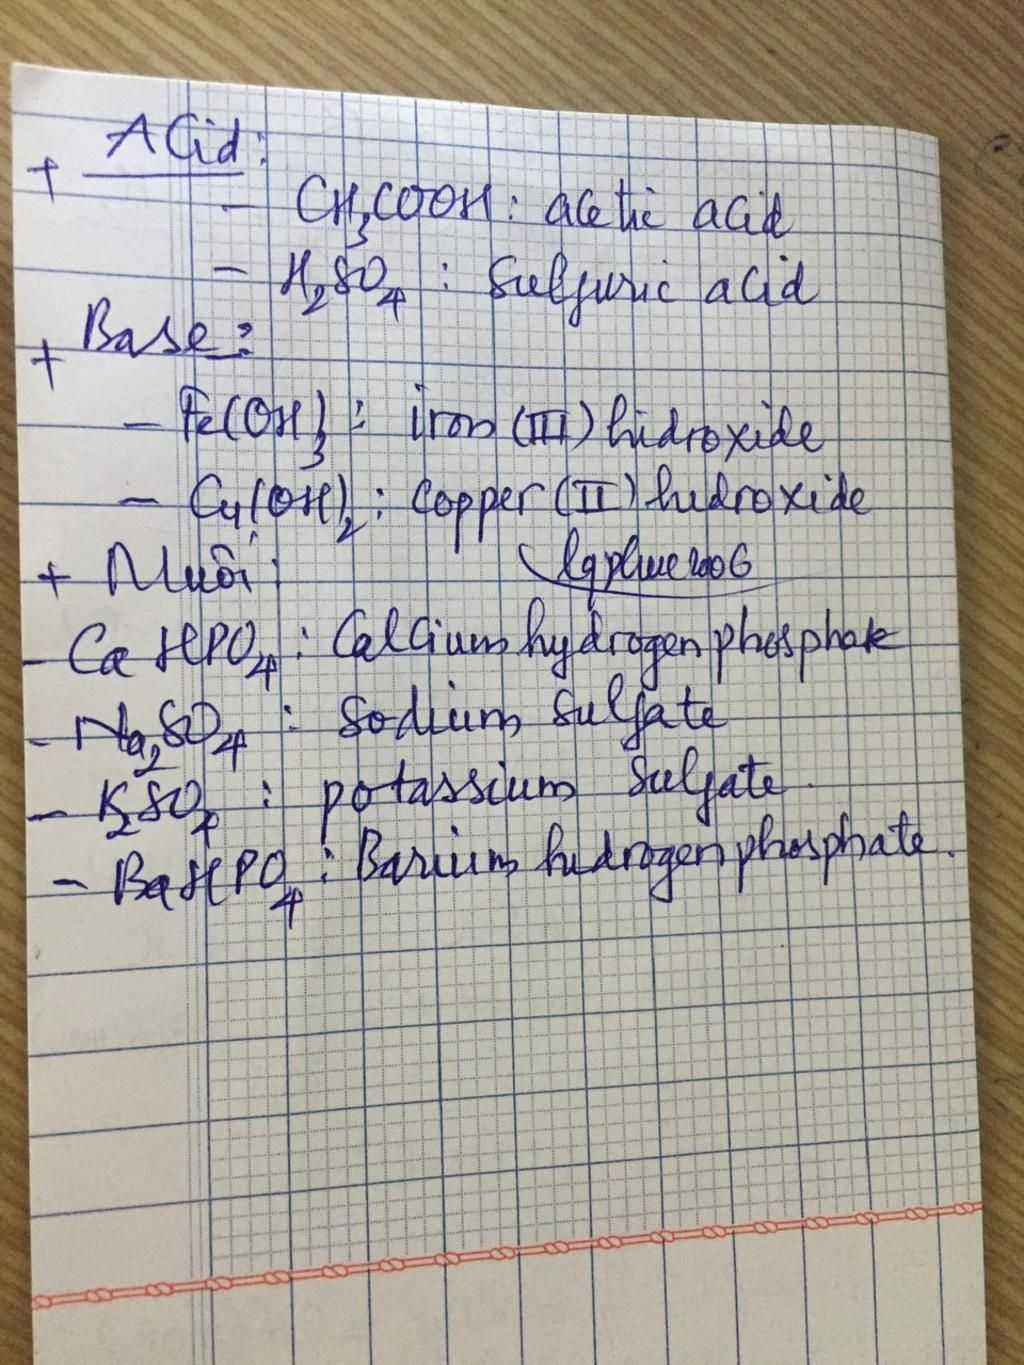 + Acid:
- CH₃COOH: acetic acid
- H₂SO₄: Sulfuric acid
+ Base:
- Fe(OH)₃: iron (III) hidroxide
- Cu(OH)₂: Copper (II) hidroxide
+ Muối:
lqphuc2006
- CaHPO₄: Calcium hydrogen phosphate
- Na₂SO₄: Sodium sulfate
- K₂SO₄: potassium sulfate.
- BaHPO₄: Barium hidrogen phosphate.